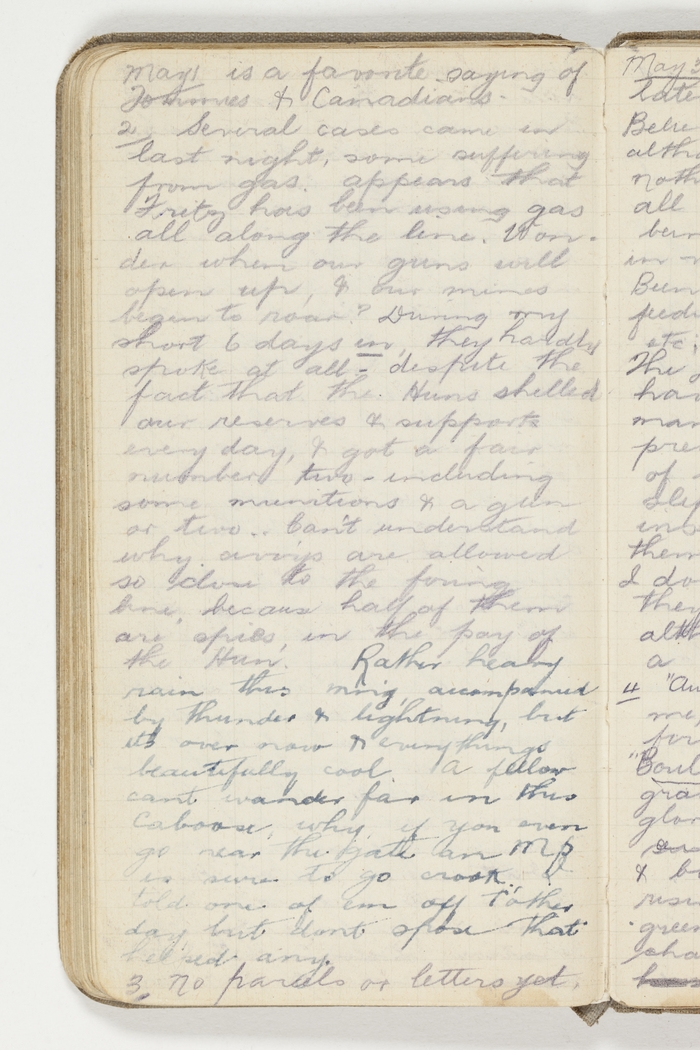 May 1 is a favorite saying of
Tommies & Canadians.
2. Several cases came in
last night, some suffering
from gas. appears that
Fritz has been using gas
all along the line. Won-
der when our guns will
open up, & our mines
begin to roar? During my
short 6 days in, they hardly
spoke at all - despite the
fact that the Huns shelled
our reserves & supports
every day, & got a fair
number two - including
some munitions & a gun
or two.. Can't understand
why are allowed
so close to the firing
line, because half of them
are spies, in the pay of
the Hun. Rather heavy
rain this mng, accompanied
by thunder & lightning, but
its over now & everythings
beautifully cool. A fellow
cant wander far in this
Caboose, why, if you even
go near the gate an MP
is sure to go crook. I
told one of em off t'other
day but dont spose that
he'sed any.
3. No parcels or letters yet,
May 3
late
all
in
etc.
The
of
them
I do
a
4 "Au
me,
"Boul
& b
green